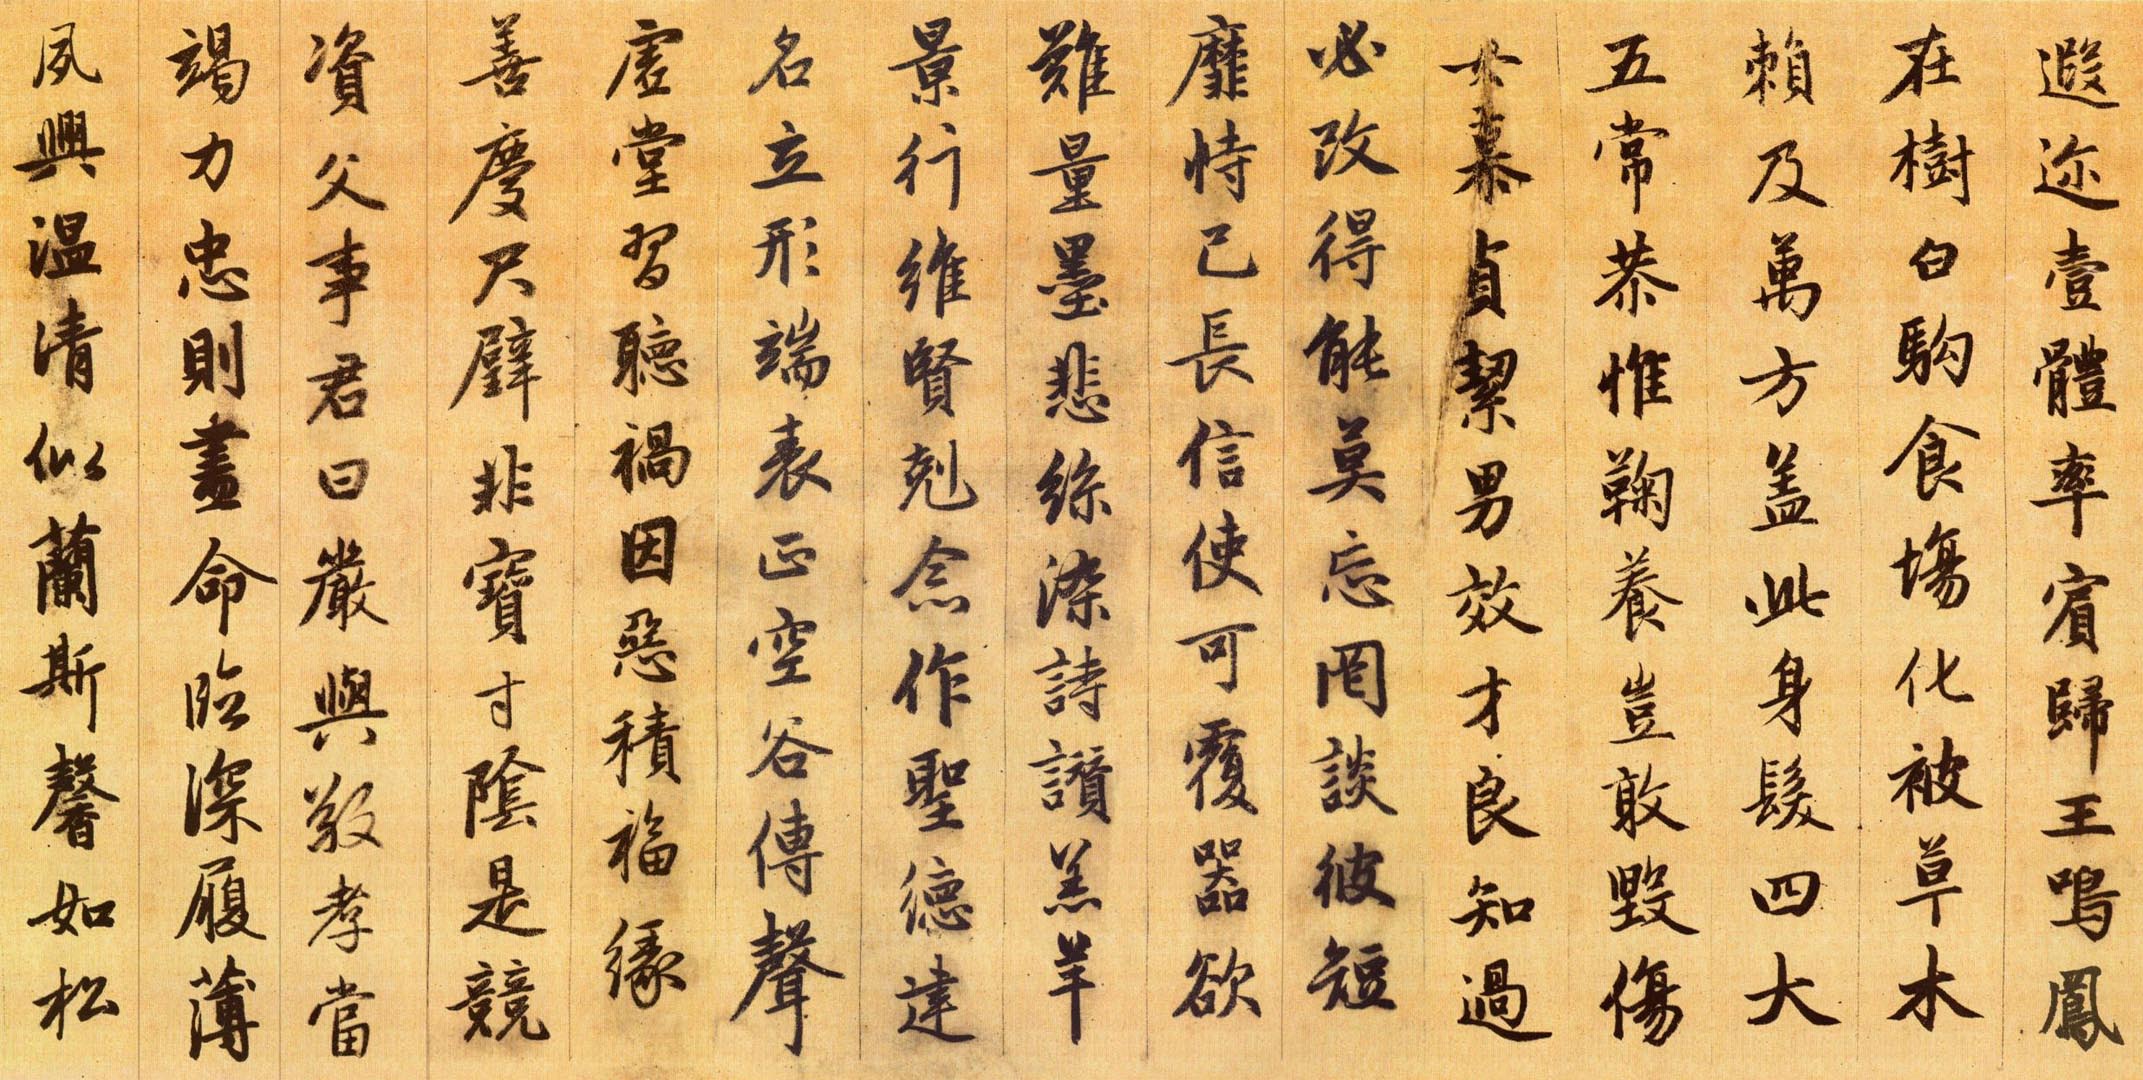 遐迩壹體率賓歸王鳴鳳
在樹白駒食場化被草木
賴及萬方盖此身髮四大
五常恭惟鞠養豈敢毀傷
女慕貞絜男效才良知過
必改得能莫忘罔談彼短
靡恃己長信使可覆器欲
難量墨悲絲染詩讃羔羊
景行維賢剋念作聖德建
名立形端表正空谷傳聲
虛堂習聽禍因惡積福緣
善慶尺璧非寶寸陰是競
資父事君曰嚴與敬孝當
竭力忠則盡命臨深履薄
夙興温清似蘭斯馨如松